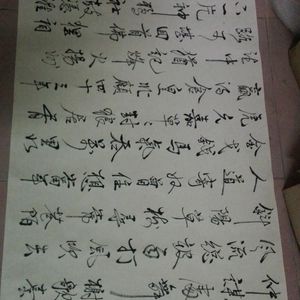 仲謀處舞榭歌臺
風流總被雨打風吹去
斜陽草樹尋常巷陌
人道寄奴曾住想當年
金戈鐵馬氣吞萬里如
虎元嘉草草封狼居胥
贏得倉皇北顧四十三年
望中猶記烽火揚州
路可堪回首佛狸
一片神鴉